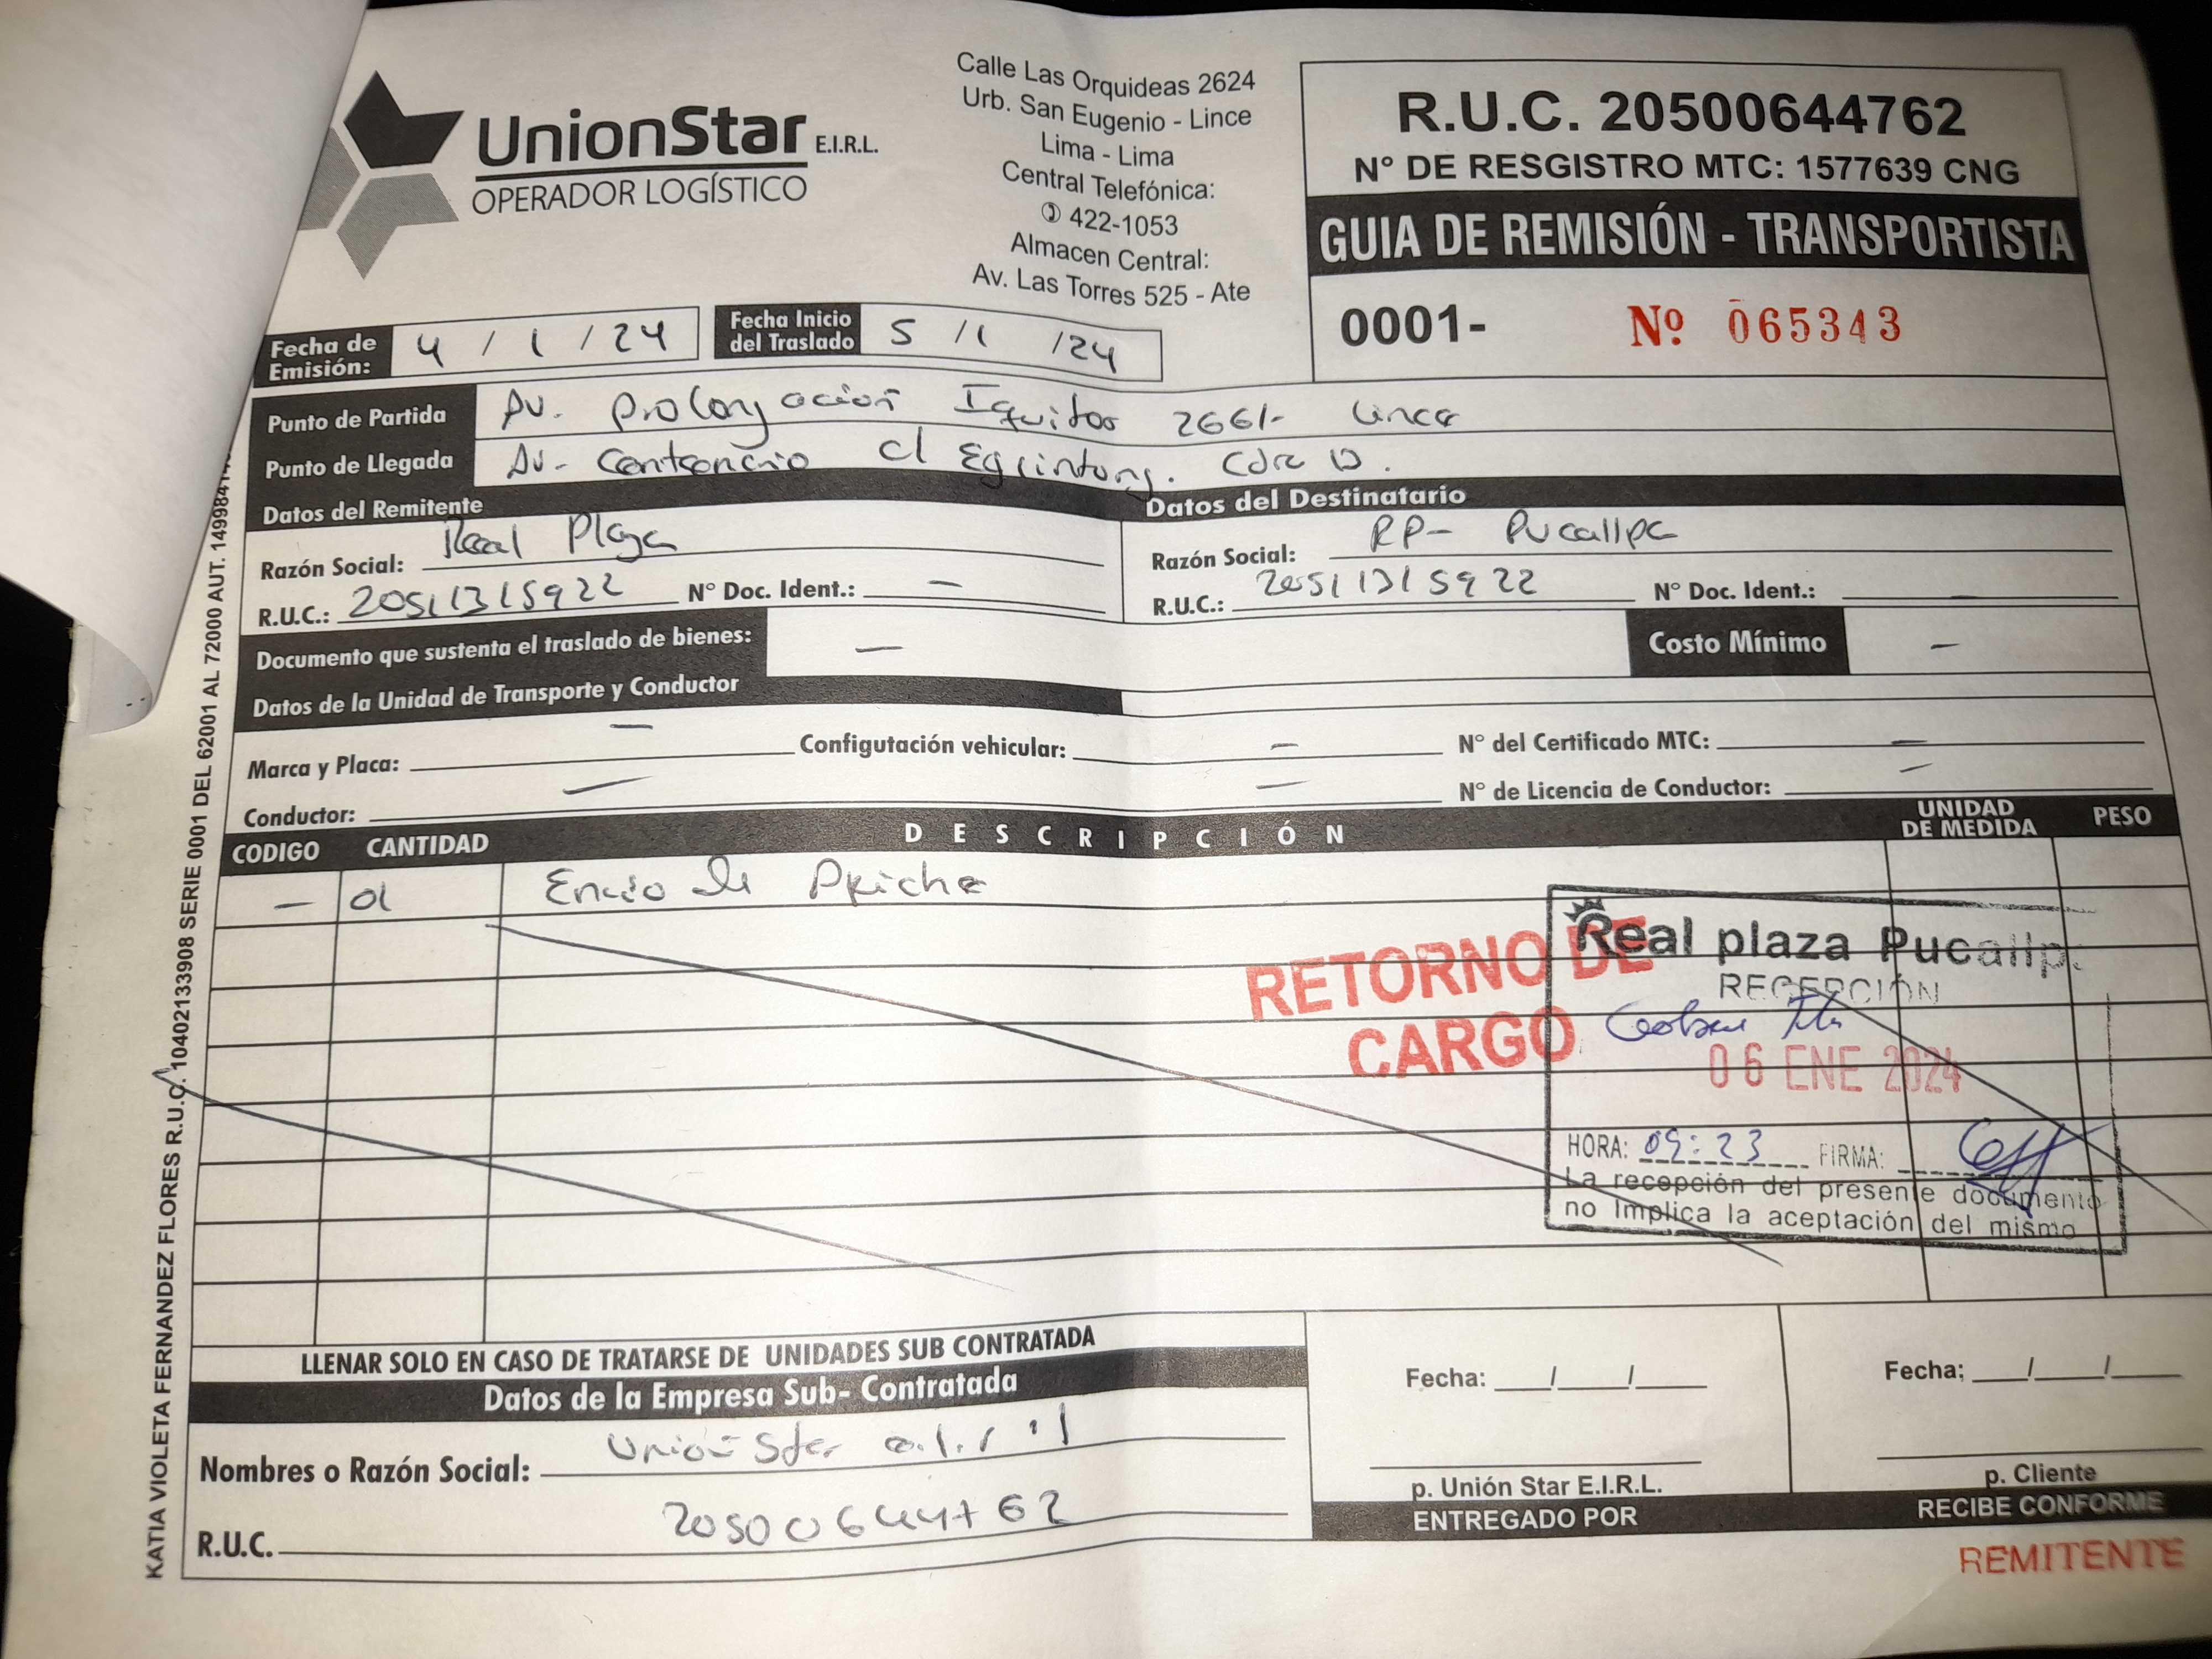 UnionStar E.I.R.L.
OPERADOR LOGÍSTICO
Calle Las Orquideas 2624
Urb. San Eugenio - Lince
Lima - Lima
Central Telefónica:
422-1053
Almacen Central:
Av. Las Torres 525 - Ate
R.U.C. 20500644762
N° DE RESGISTRO MTC: 1577639 CNG
GUIA DE REMISIÓN - TRANSPORTISTA
0001- Nº 065343
Fecha de Emisión: 4 / 1 / 24 Fecha Inicio del Traslado 5 / 1 / 24
Punto de Partida Av. Prolongación Iquitos 2661- Lince
Punto de Llegada Av- Centenario
Datos del Remitente Datos del Destinatario
Razón Social: Real Plaza Razón Social: RP- Pucallpa
R.U.C.: 20511315922 N° Doc. Ident.: — R.U.C.: 20511315922 N° Doc. Ident.: —
Documento que sustenta el traslado de bienes: — Costo Mínimo —
Datos de la Unidad de Transporte y Conductor
Marca y Placa: — Configutación vehicular: — N° del Certificado MTC: —
Conductor: — — N° de Licencia de Conductor: —
CODIGO CANTIDAD DESCRIPCIÓN UNIDAD DE MEDIDA PESO
— 01 Envio de
RETORNO DE
CARGO
Real plaza Pucallp
RECEPCIÓN
06 ENE 2024
HORA: 09:23 FIRMA:
La recepción del presente documento
no Implica la aceptación del mismo
LLENAR SOLO EN CASO DE TRATARSE DE UNIDADES SUB CONTRATADA
Datos de la Empresa Sub- Contratada
Nombres o Razón Social: Union Star e.i.r.l
R.U.C. 20500644762
Fecha: / / Fecha: / /
p. Unión Star E.I.R.L. p. Cliente
ENTREGADO POR RECIBE CONFORME
REMITENTE
KATIA VIOLETA FERNANDEZ FLORES R.U.C. 10402133908 SERIE 0001 DEL 62001 AL 72000 AUT.